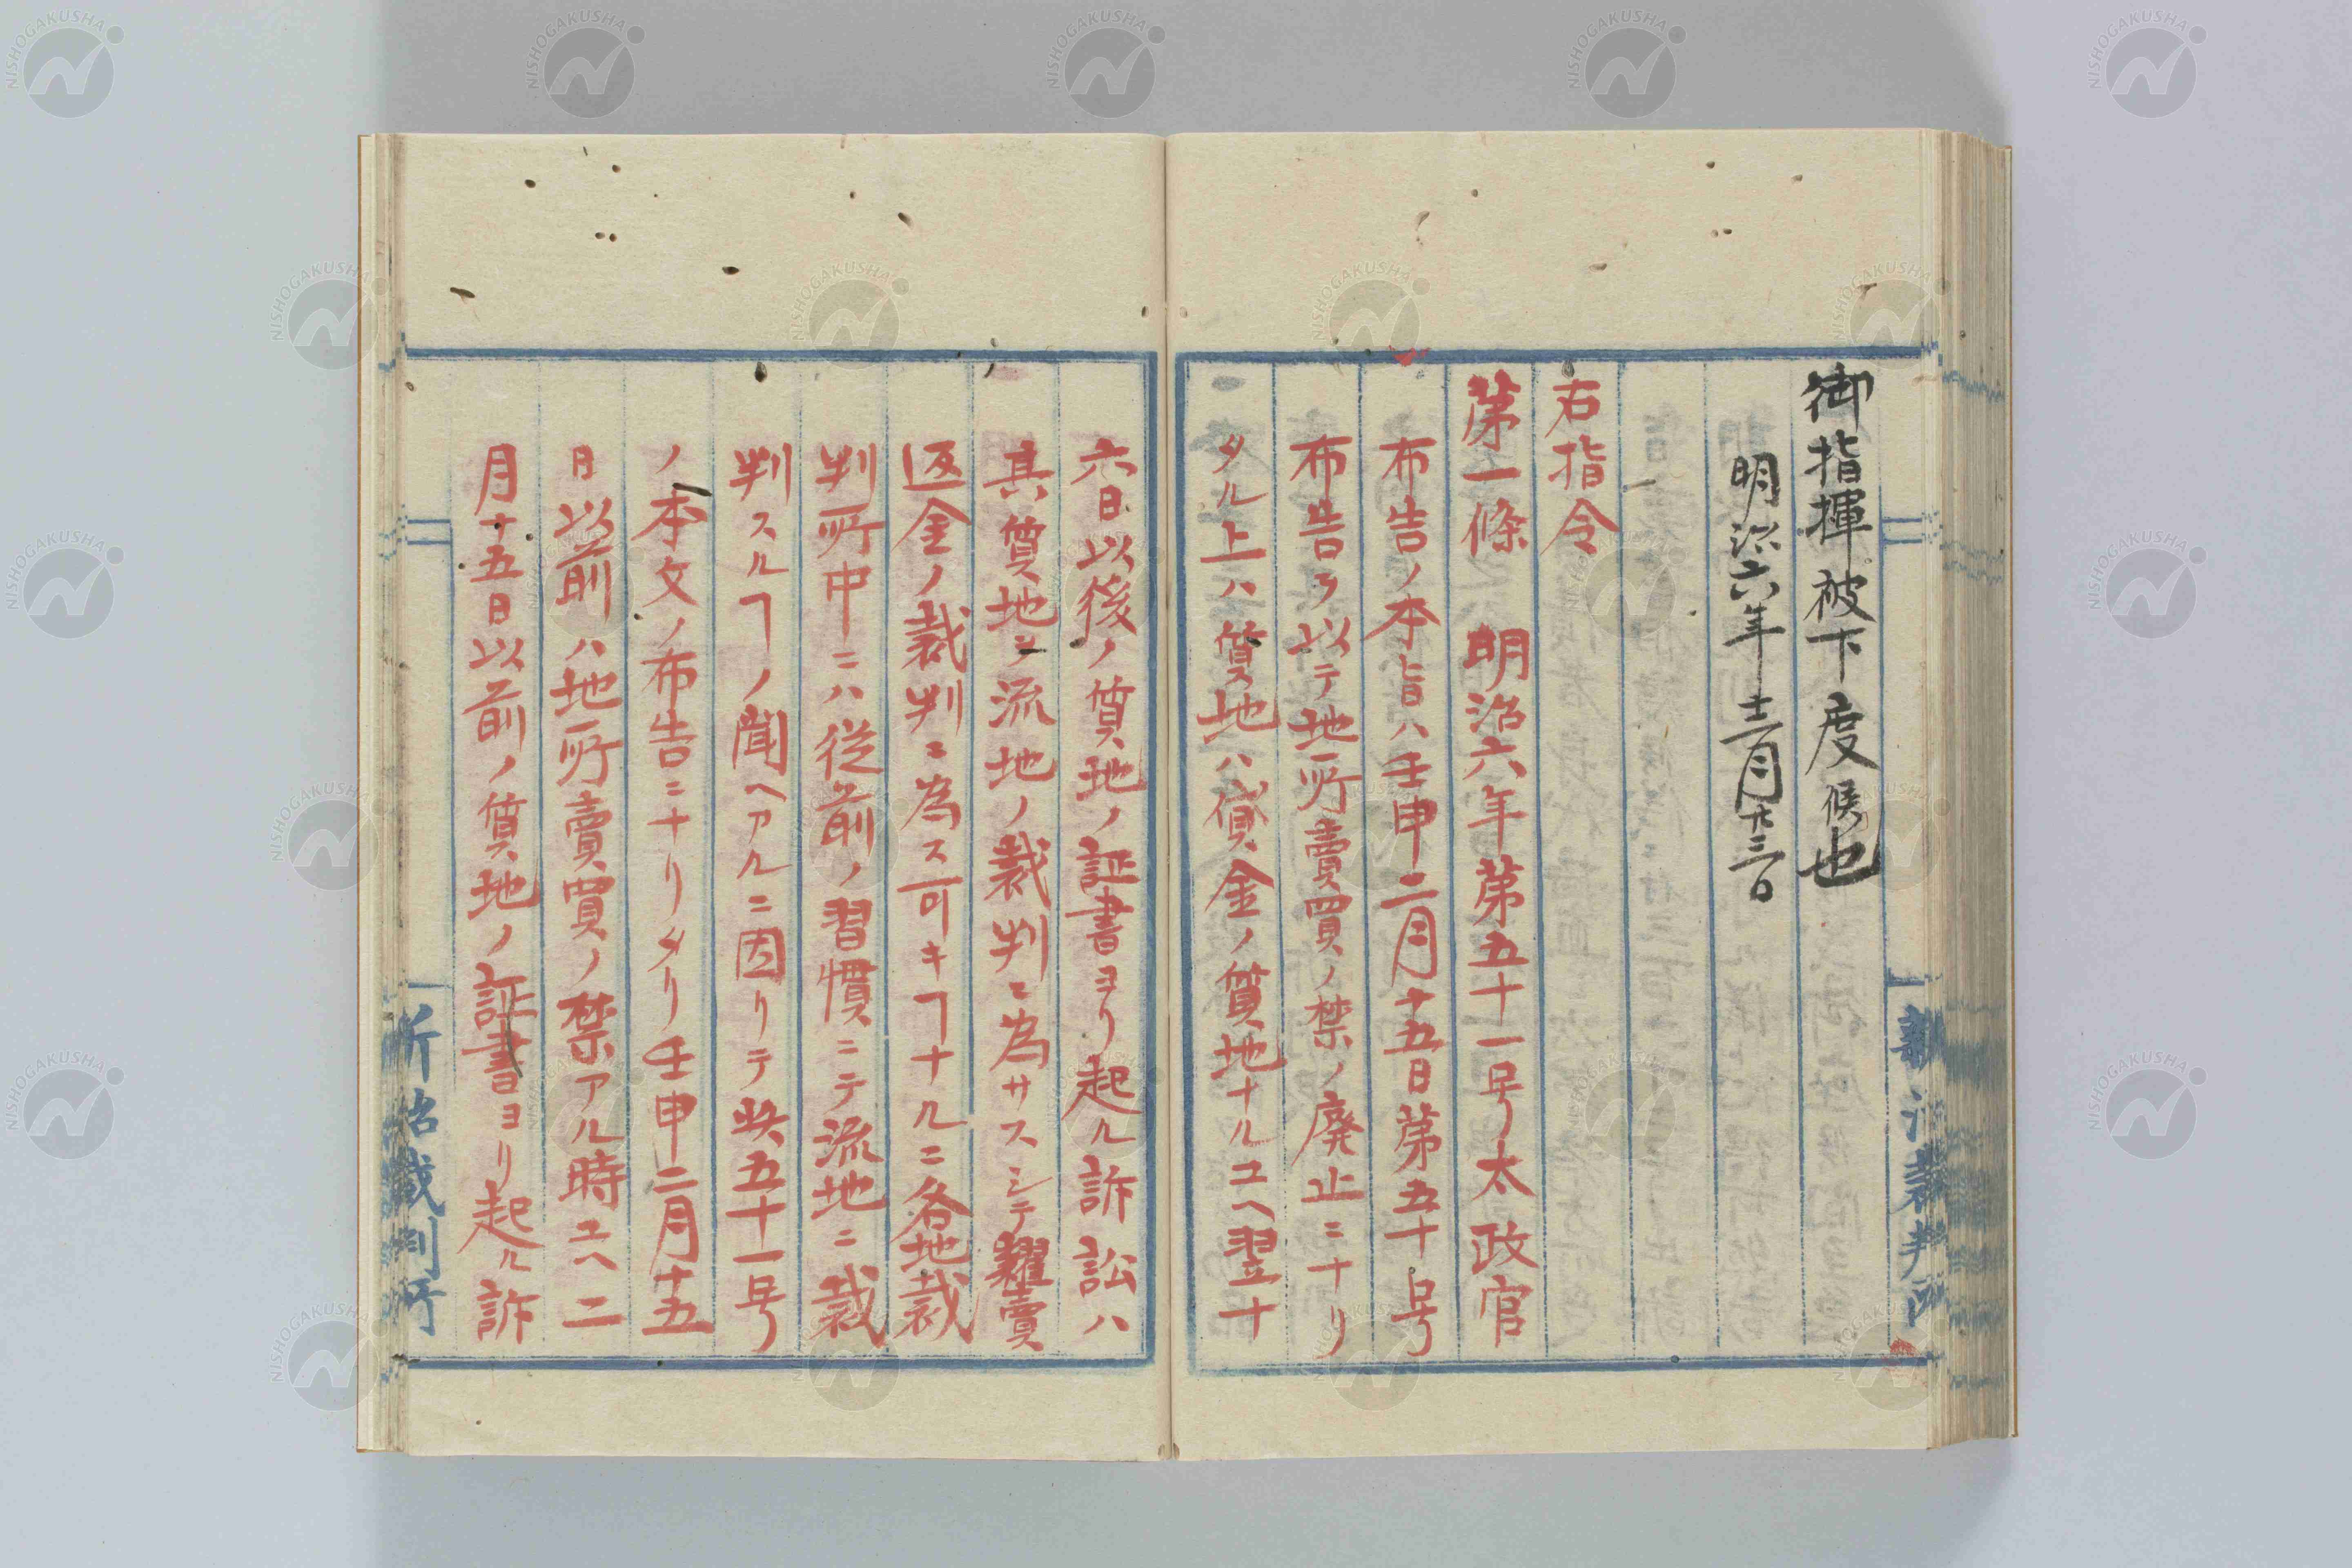 御指揮被下度候也
明治六年十二月廿三日
右指令
第一條 明治六年第五十一号太政官
布告ノ本旨ハ壬申二月十五日第五十号
布告ヲ以テ地所賣買ノ禁ノ廃止ニナリ
タル上ハ質地ハ貸金ノ質地ナルユヘ翌十
六日以後ノ質地ノ証書ヨリ起ル訴訟ハ
其質地ヲ流地ノ裁判ニ為サスシテ糶賣
返金ノ裁判ニ為ス可キヿナルニ各地裁
判所中ニハ従前ノ習慣ニテ流地ニ裁
判スルヿノ聞ヘアルニ因リテ此五十一号
ノ本文ノ布告ニナリタリ壬申二月十五
日以前ハ地所賣買ノ禁アル時ユヘ二
月十五日以前ノ質地ノ証書ヨリ起ル訴
新治裁判所
新治裁判所
NISHOGAKUSHA